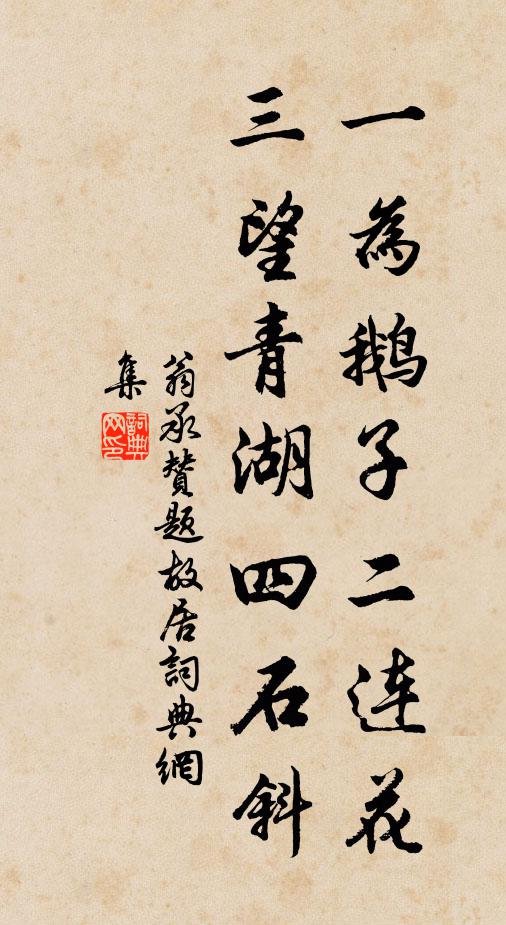 一為鵝子二連花
三望青湖四石斜
翁承贊題故居詞典網
集
詞典网印